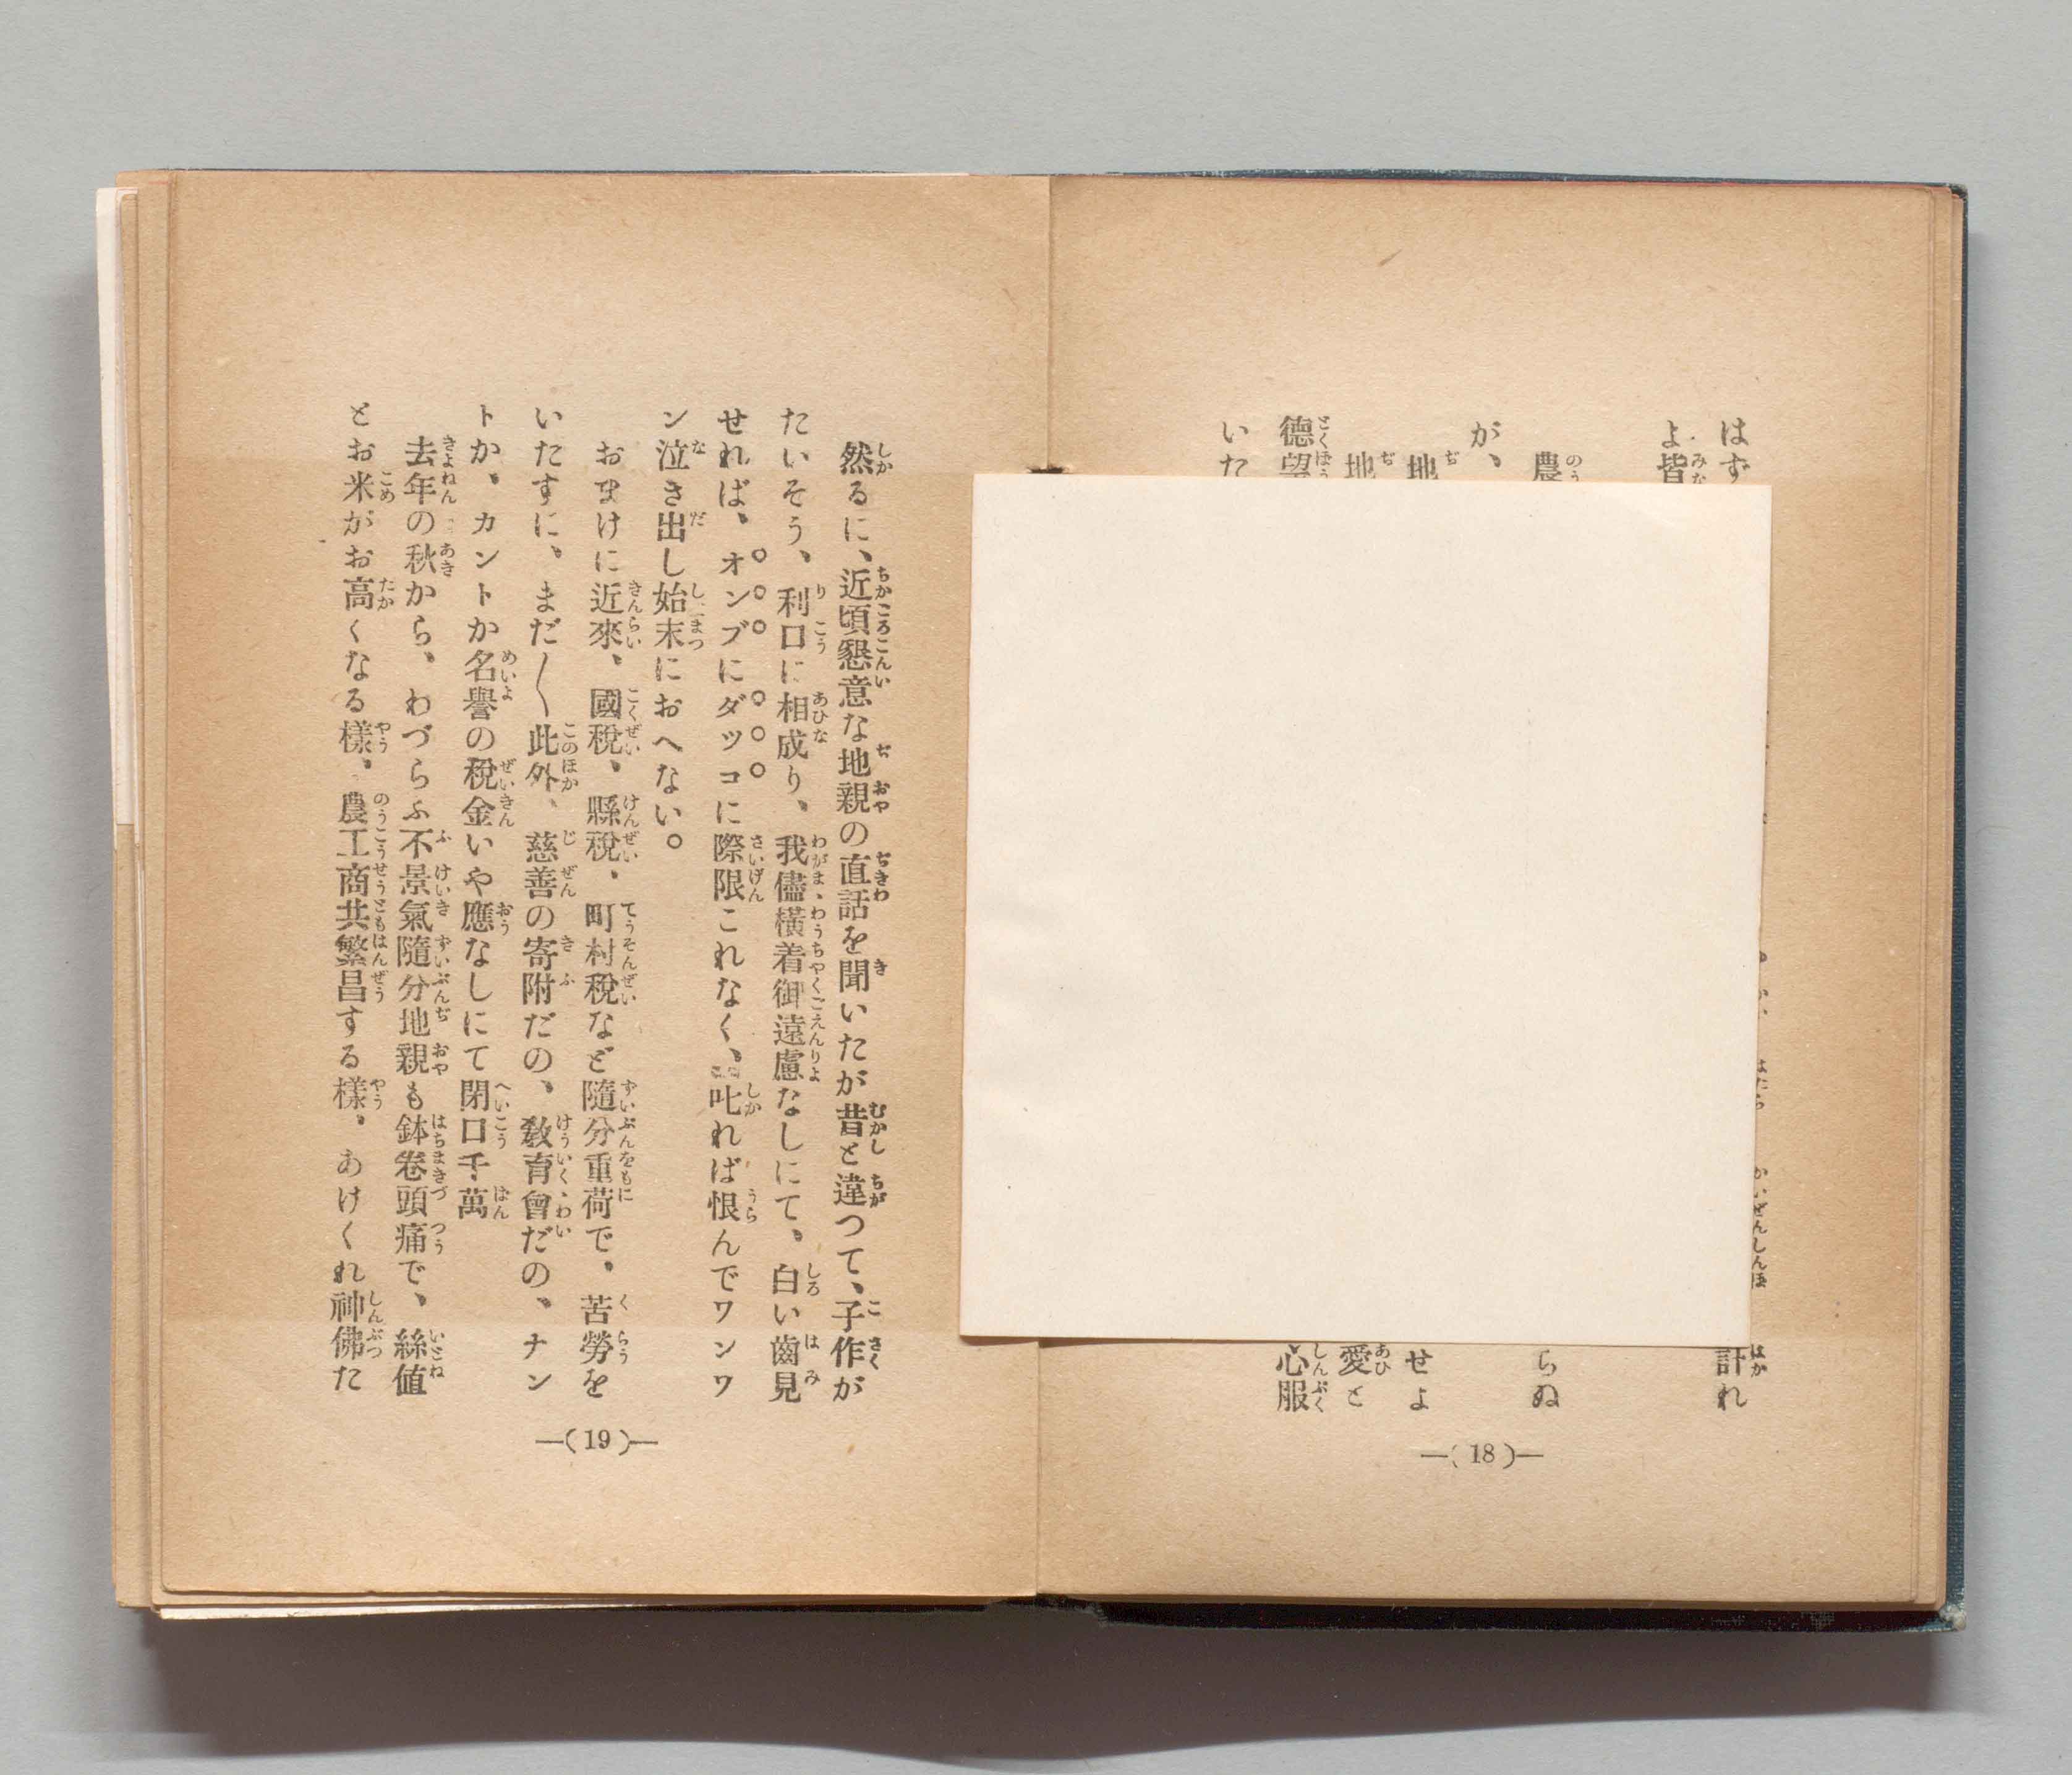 はず
計れ
よ皆
農
らぬ
が、
地
せよ
地
愛と
徳望
心服
いた
—(18)—
然るに、近頃懇意な地親の直話を聞いたが昔と違つて、子作が
たいそう、利口に相成り、我儘横着御遠慮なしにて、白い齒見
せれば、オンブにダッコに際限これなく、叱れば恨んでワンワ
ン泣き出し始末におへない。
おまけに近來、國税、縣税、町村税など隨分重荷で、苦勞を
いたすに、まだ〱此外、慈善の寄附だの、敎育會だの、ナン
トか、カントか名譽の税金いや應なしにて閉口千萬
去年の秋から、わづらふ不景氣隨分地親も鉢卷頭痛で、絲値
とお米がお高くなる樣、農工商共繁昌する樣、あけくれ神佛た
—(19)—